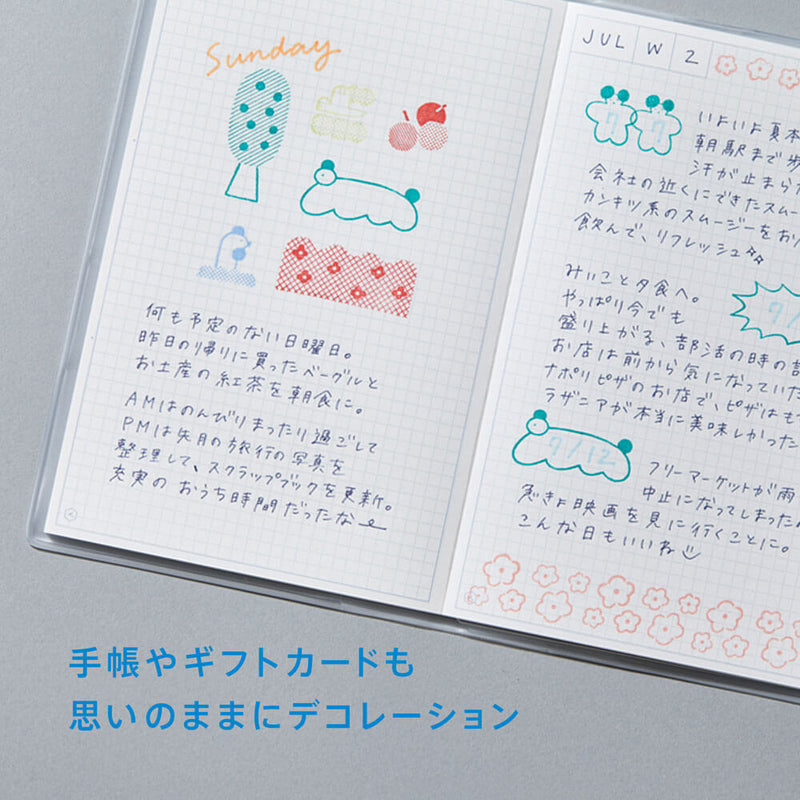 Sunday
何も予定のない日曜日。
昨日の帰りに買ったベーグルと
お土産の紅茶を朝食に。
AMはのんびりまったり過ごして
PMは先月の旅行の写真を
整理して、スクラップブックを更新。
充実の おうち時間だったな
JUL W 2
7/7
いよいよ夏本
朝駅まで歩
汗が止まら
会社の近くにできたスムー
カンキツ系のスムージーをお
飲んで、リフレッシュ
みいこと夕食へ。
やっぱり今でも
盛り上がる、部活の時の
お店は前から気になってい
ナポリピザのお店で、ピザはも
ラザニアが本当に美味しかった
7/12
フリーマーケットが雨
中止になってしまった
急きょ映画を見に行くことに。
こんな日もいいね
手帳やギフトカードも
思いのままにデコレーション